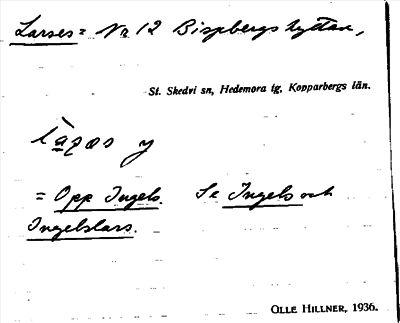 Larses = No 12 Bispbergshyttan,
St. Skedvi sn, Hedemora tg, Kopparbergs län.
y
= Opp Ingels. Se Ingels och
Ingelslars.
OLLE HILLNER, 1936.